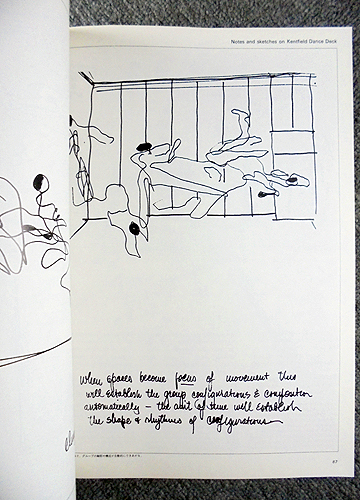 Notes and sketches on Kentfield Dance Deck
When spaces become focus of movement this
will establish the group configurations & composition
automatically — the unit of time will establish
the shape & rhythms of configurations
67